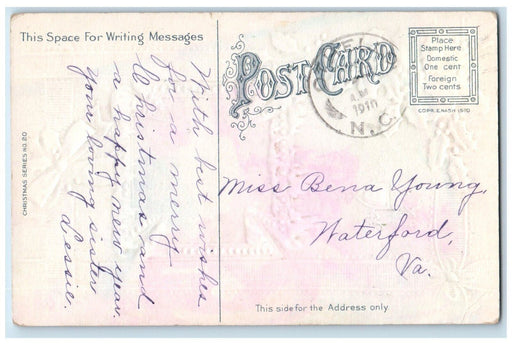 This Space For Writing Messages
POST CARD
Place
Stamp Here
Domestic
One cent
Foreign
Two cents
COPR. E. NASH 1910
1910
N.C.
CHRISTMAS SERIES NO. 20
With best wishes
for a merry
Christmas and
a happy new year.
your loving sister
Lessie.
Miss Bena Young,
Waterford,
Va.
This side for the Address only